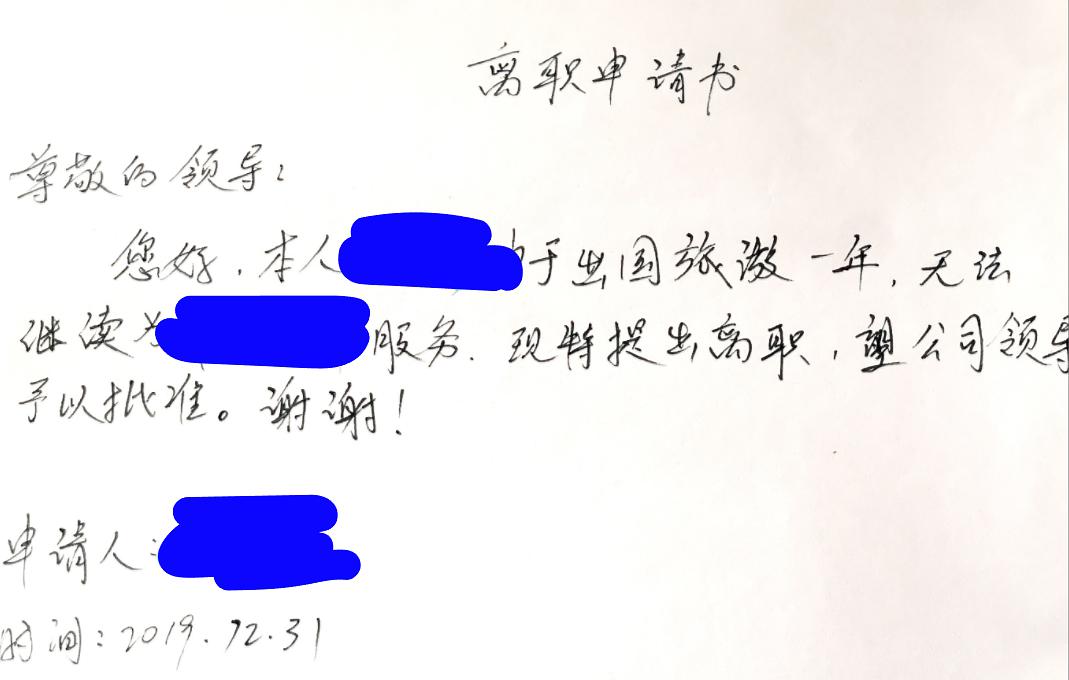 离职申请书
尊敬的领导：
您好，本人 于出国旅游一年，无法
继续为 服务．现特提出离职，望公司领导
予以批准。谢谢！
申请人：
时间：2019.12.31